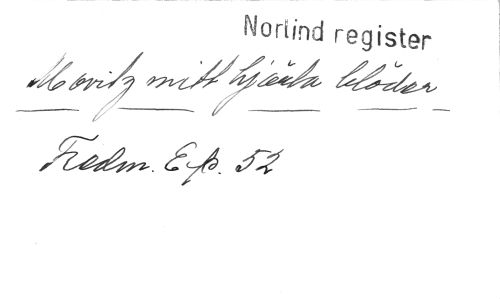 Norlind register
Movitz mitt hjärta blöder
Fredm. Ep. 52